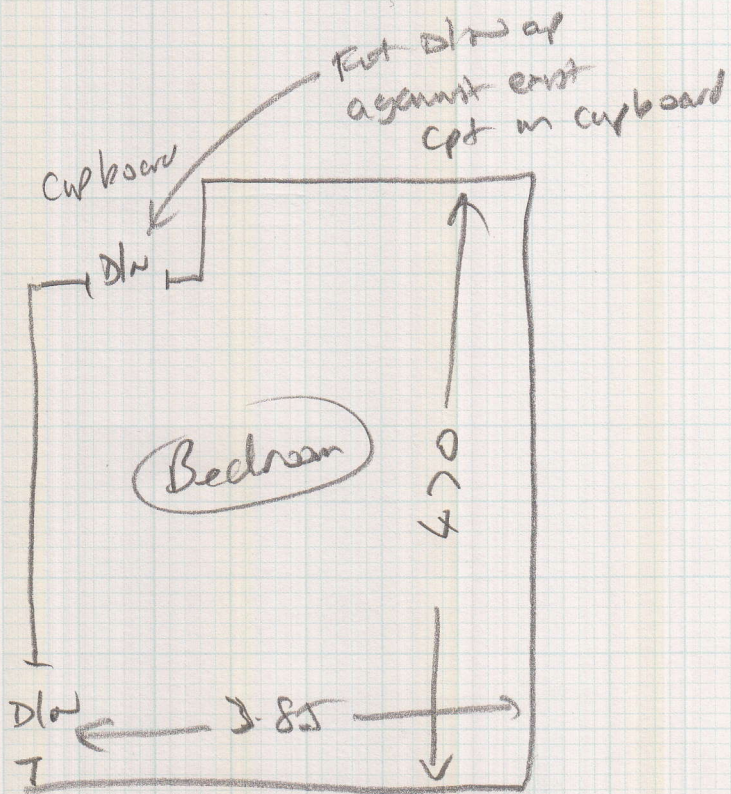 Fit D/W up
against exist
cpt in cupboard
Cupboard
D/W
Bedroom
470
D/W
3.85